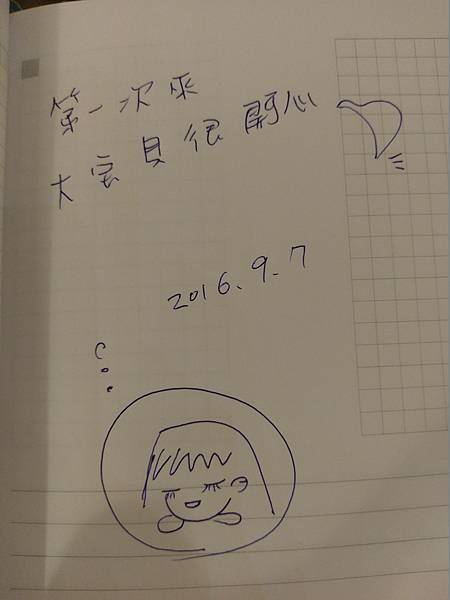 第一次來
大寶貝很開心
2016.9.7